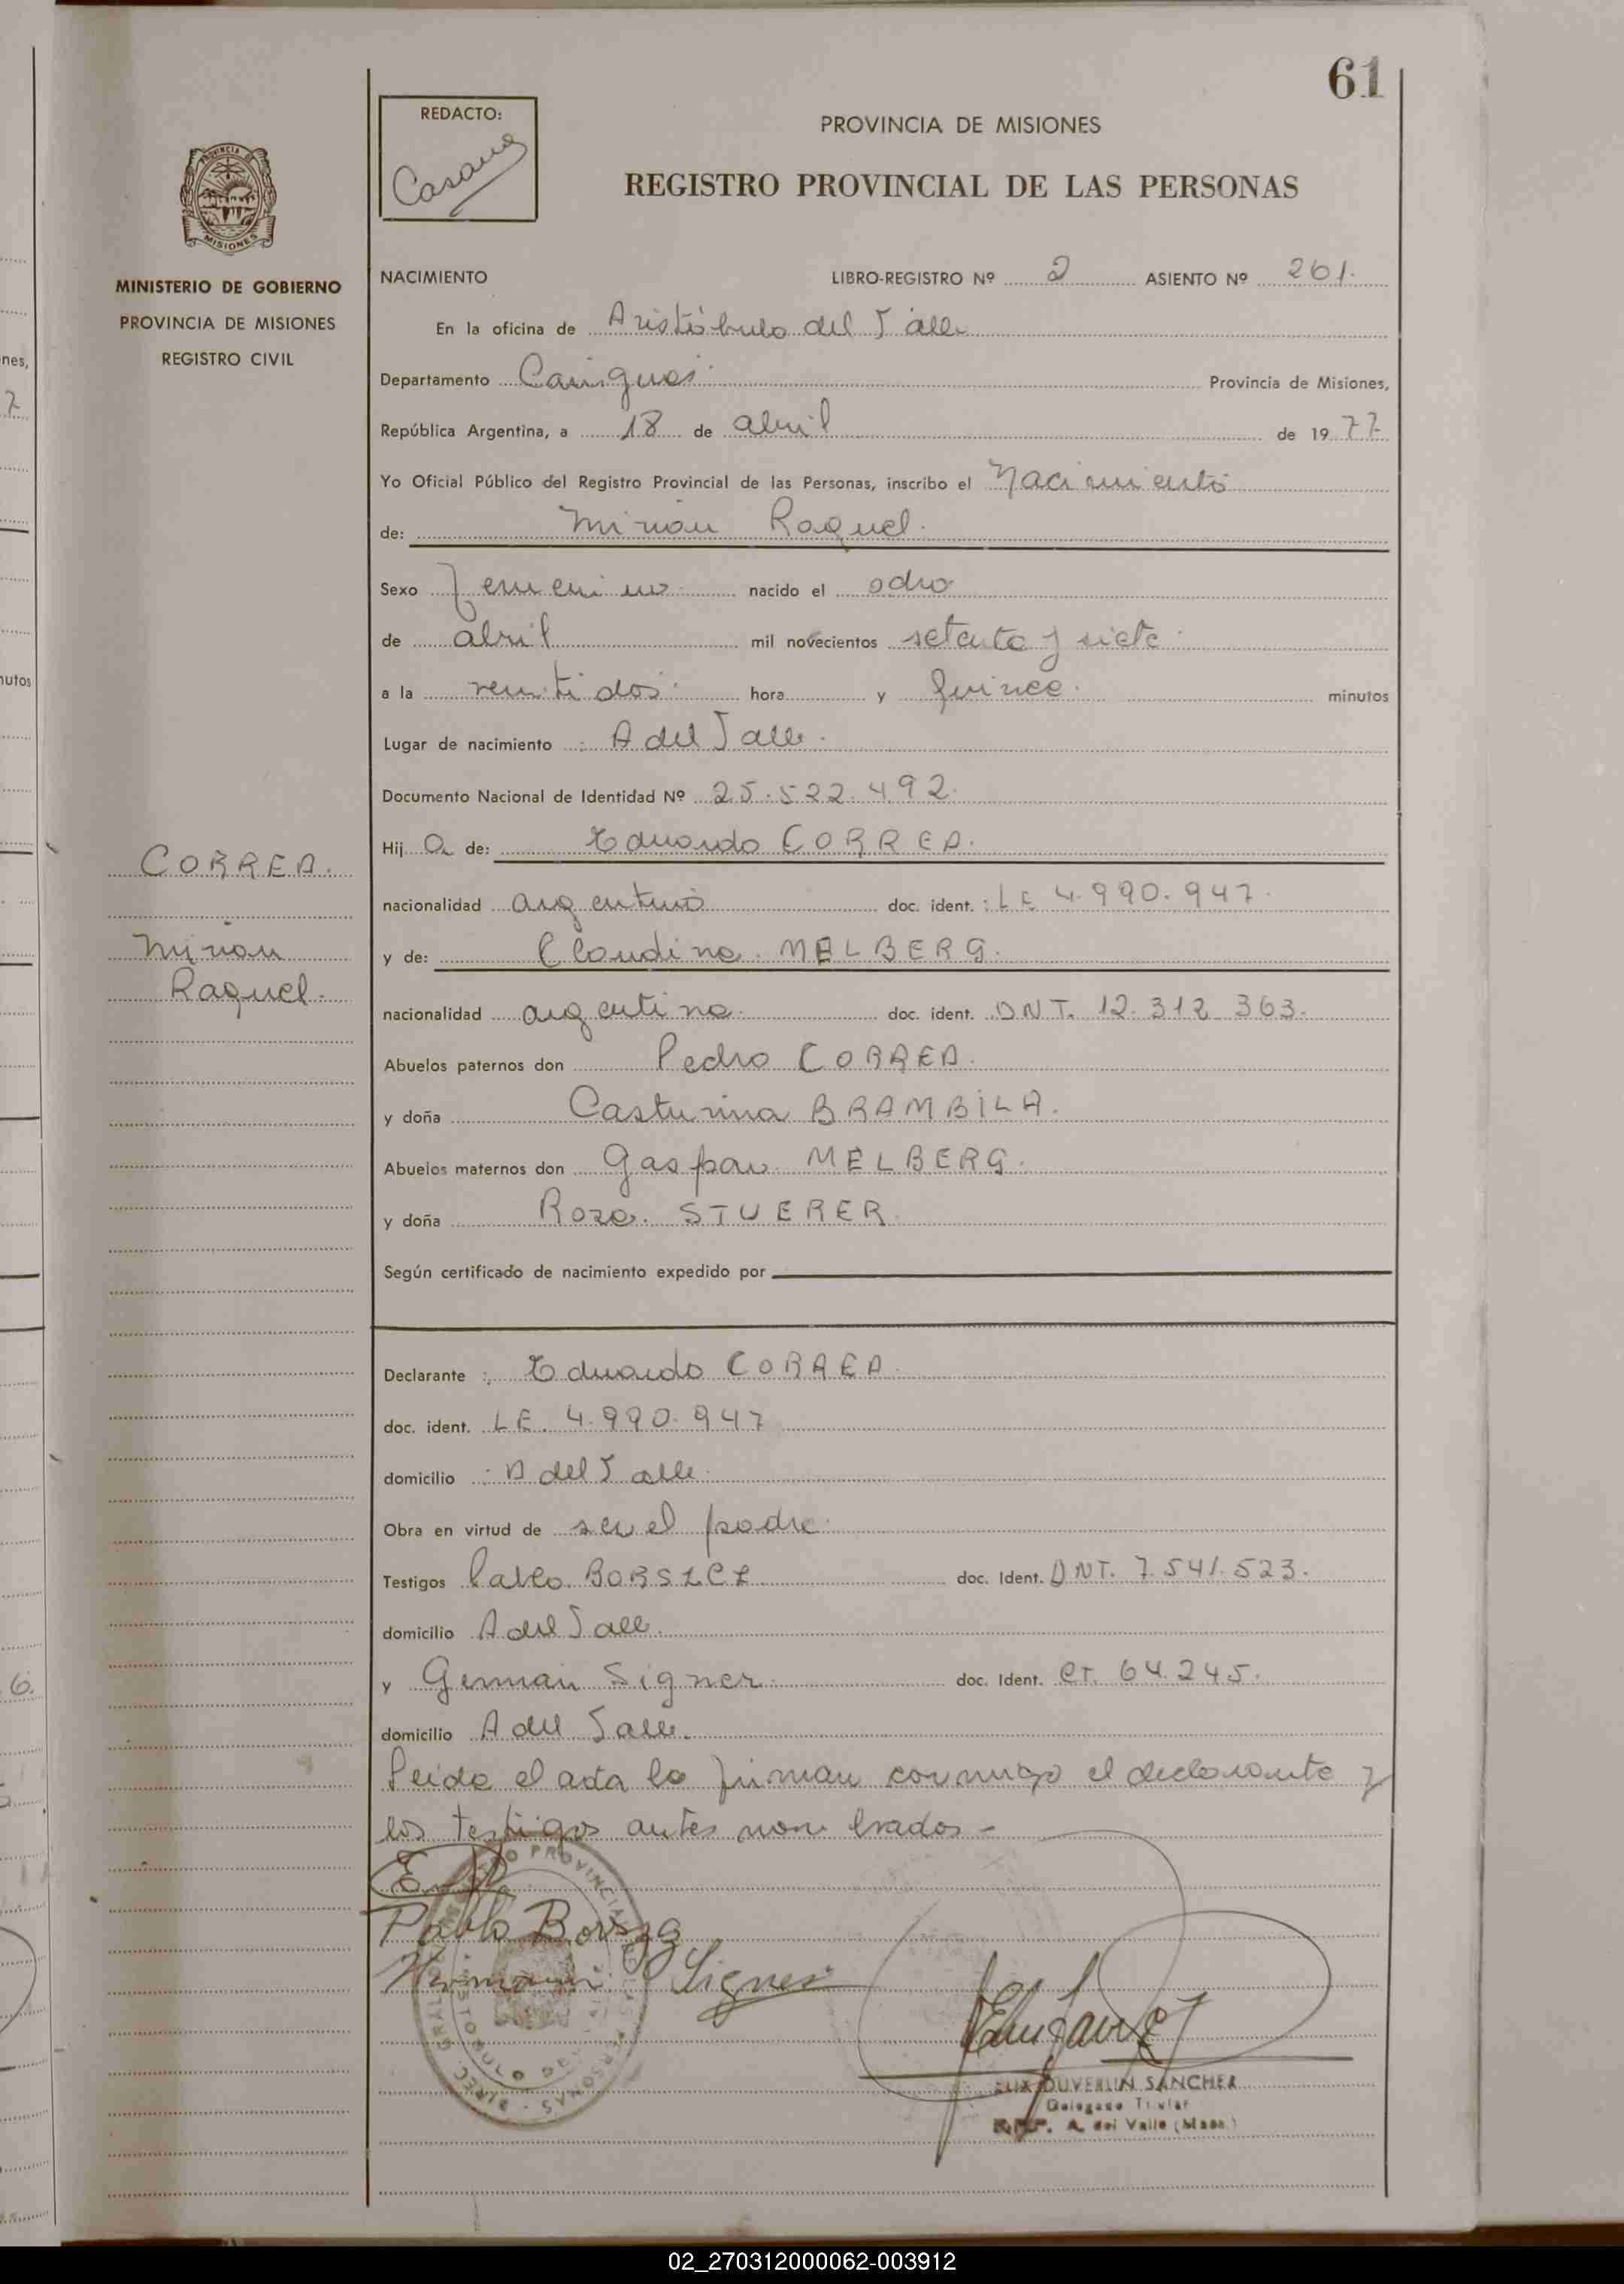 61
REDACTO:
Casana
PROVINCIA DE MISIONES
REGISTRO PROVINCIAL DE LAS PERSONAS
PROVINCIA DE
MISIONES
MINISTERIO DE GOBIERNO
PROVINCIA DE MISIONES
REGISTRO CIVIL
NACIMIENTO LIBRO-REGISTRO Nº 2 ASIENTO Nº 261.
En la oficina de Aristóbulo del Valle
Departamento Cainguás Provincia de Misiones,
República Argentina, a 18 de abril de 1977
Yo Oficial Público del Registro Provincial de las Personas, inscribo el Nacimiento
de: Mirian Raquel.
Sexo femenino nacido el ocho
de abril mil novecientos setenta y siete
a la veintidos hora y quince minutos
Lugar de nacimiento : A del Valle.
Documento Nacional de Identidad Nº 25.522.492.
Hija de: Eduardo CORREA.
CORREA.
Mirian
Raquel.
nacionalidad argentino doc. ident. : LE 4.990.947.
y de: Claudina MELBERG.
nacionalidad argentina. doc. ident. DNI. 12.312.363.
Abuelos paternos don Pedro CORREA.
y doña Casturina BRAMBILA.
Abuelos maternos don Gaspar MELBERG.
y doña Rosa. STUERER
Según certificado de nacimiento expedido por
Declarante : Eduardo CORREA.
doc. ident. LE. 4.990.947
domicilio : A del Valle.
Obra en virtud de ser el padre.
Testigos Pablo BORSZCZ doc. Ident. DNI. 7.541.523.
domicilio A del Valle.
y German Signer. doc. Ident. CI. 64.245.
domicilio A del Valle.
Leida el acta la firman conmigo el declarante y
los testigos antes nombrados -
Pablo Borszg
Hermann Signer
DUVERLIN SANCHEZ
Delegado Titular
A. del Valle (Mnes.)
02_270312000062-003912